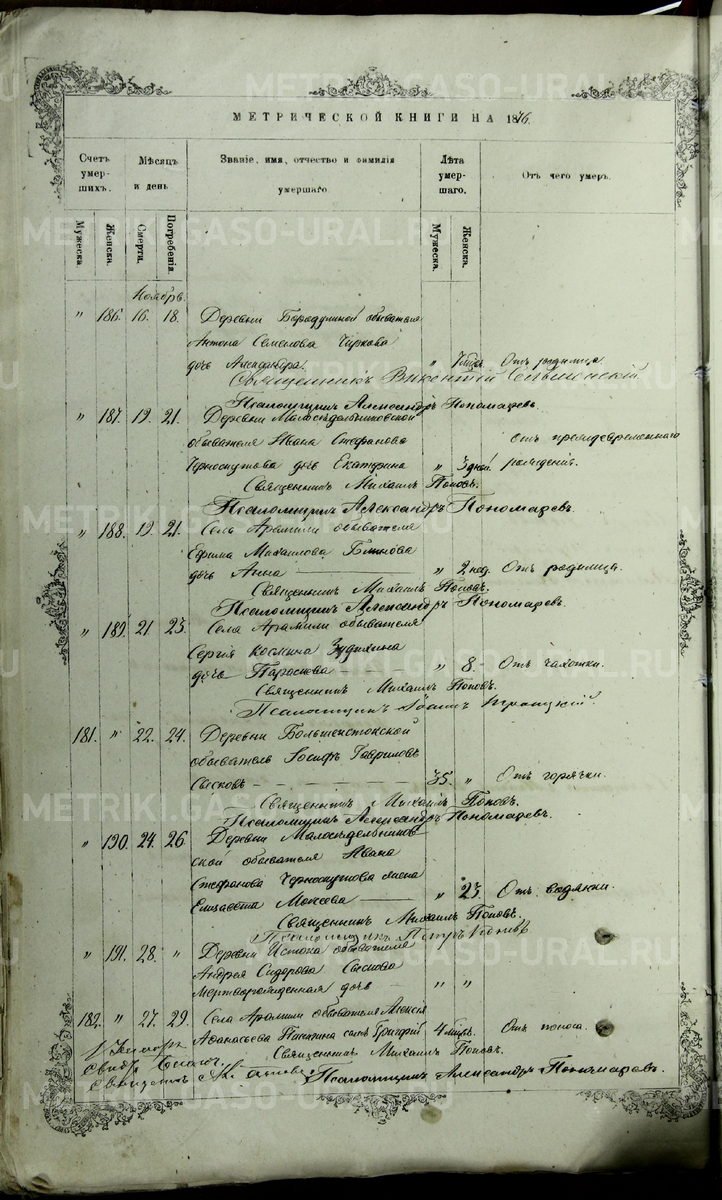 МЕТРИЧЕСКОЙ КНИГИ НА 1876.
Счетъ умер- шихъ.
Мѣсяцъ и день
Званіе, имя, отчество и фамилія умершаго.
Лѣта умер- шаго.
Отъ чего умеръ.
Мужеска. Женска. Смерти. Погребенія. Мужеска. Женска.
Ноябрь.
" 186. 16. 18. Деревни Бородулиной обывателя
Антона Семенова Чиркова
дочь Александра. " 7 мѣсц. Отъ родимца
Священникъ Викентій
Псаломщикъ Александръ Пономаревъ.
" 187. 19. 21. Деревни Малосѣдельниковской
обывателя Ивана Стефанова отъ преждевременнаго
Черноскутова дочь Екатерина " 3 дней. рожденія.
Священникъ Михаилъ Поповъ.
Псаломщикъ Александръ Пономаревъ.
" 188. 19. 21. Села Арамили обывателя
Ефима Михаилова Блинова
дочь Анна " 2 нед. Отъ родимца.
Священникъ Михаилъ Поповъ.
Псаломщикъ Александръ Пономаревъ.
" 189. 21 23. Села Арамили обывателя
Сергія Космина
дочь Параскева " 8. Отъ чахотки.
Священникъ Михаилъ Поповъ.
Псаломщикъ Іоаннъ Троицкій.
181. " 22. 24. Деревни Большеистокской
обыватель Іосифъ Гавриловъ
Сысковъ 35. " Отъ горячки.
Священникъ Михаилъ Поповъ.
Псаломщикъ Александръ Пономаревъ.
" 190. 24. 26. Деревни Малосѣдельников-
ской обывателя Ивана
Стефанова Черноскутова жена
Елизавета Моисеева " 23. Отъ водянки.
Священникъ Михаилъ Поповъ.
Псаломщикъ Петръ Поповъ
" 191. 28. " Деревни Истока обывателя
Андрея Сидорова Сыскова
мертворожденная дочь " "
182. " 27. 29. Села Арамили обывателя Алексія
Афанасьева сынъ Григорій 4 мѣсц. Отъ поноса.
Священникъ Михаилъ Поповъ.
Псаломщикъ Александръ Пономаревъ.
METRIKI.GASO-URAL.RU